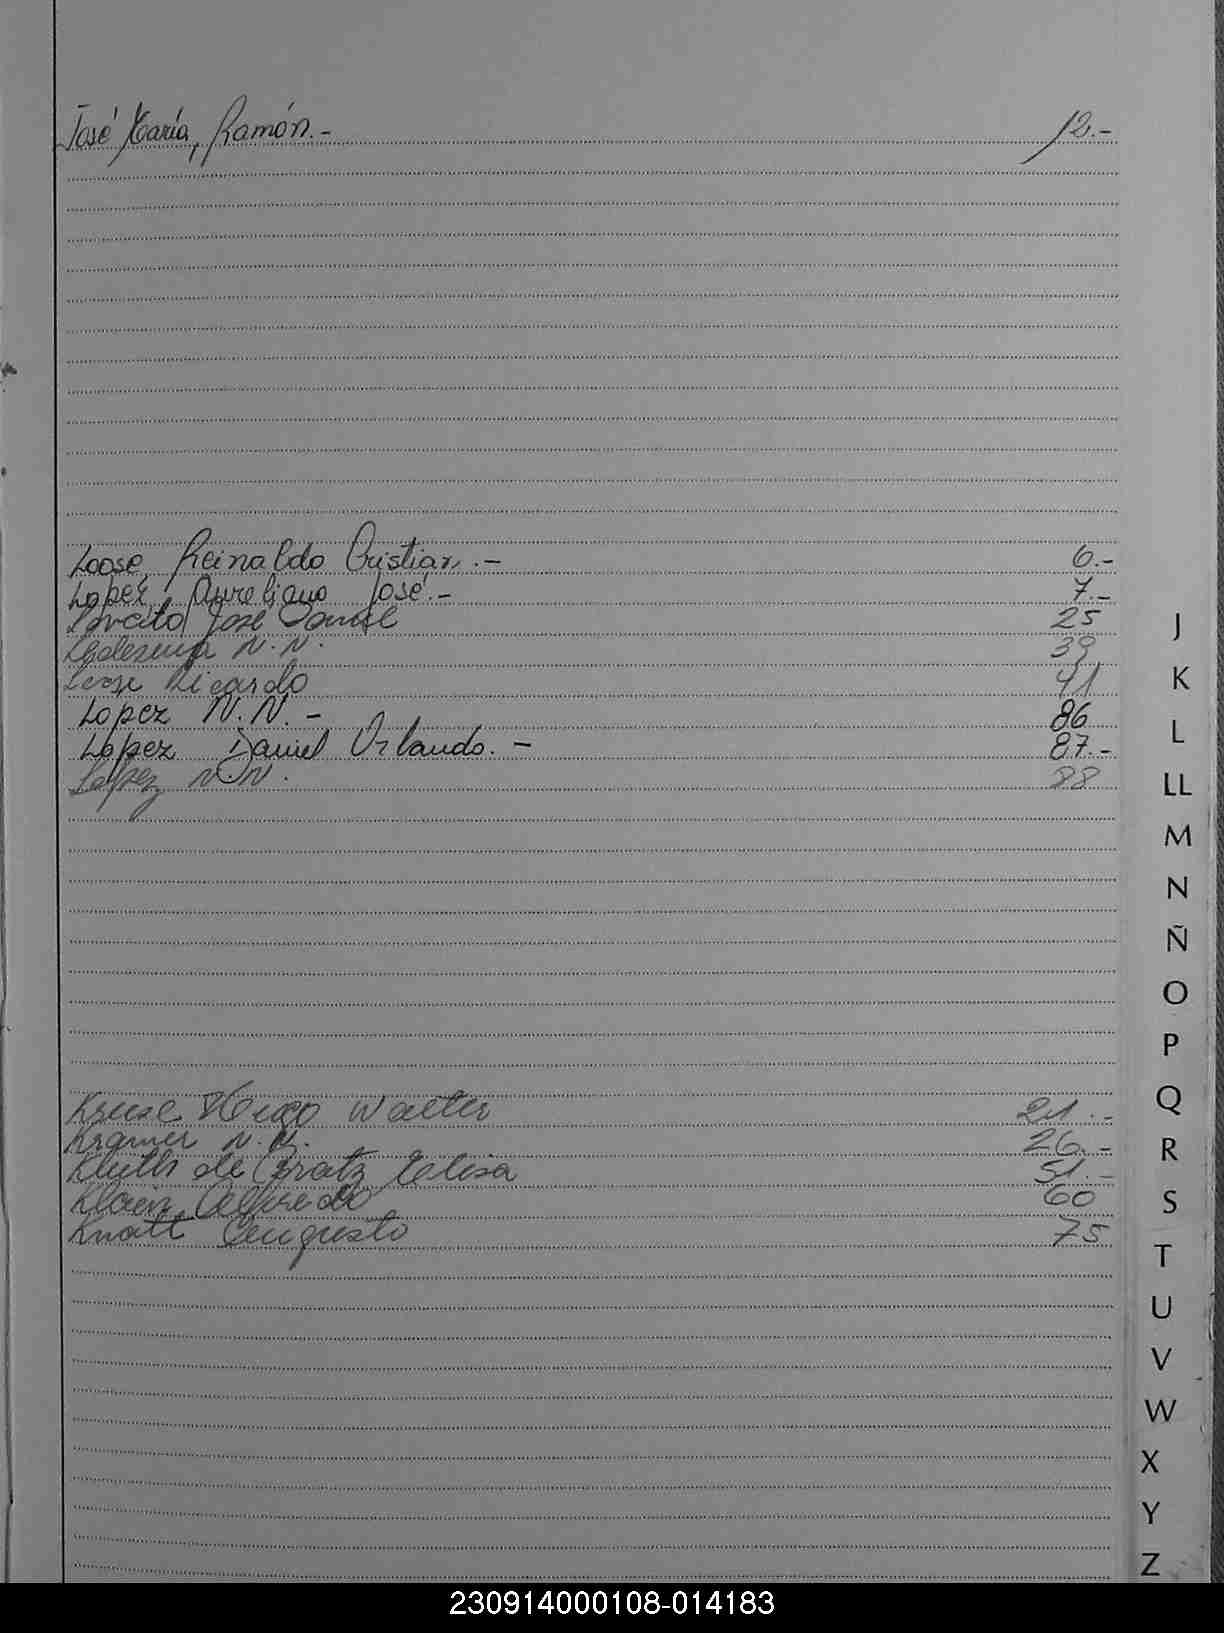 José María, Ramón.- 12.-
Loose Reinaldo Cristian.- 6.-
Lopez Aureliano José.- 7.-
José Daniel 25
Ledesma N.N. 39
Ricardo 41
Lopez N.N.- 86
Lopez Daniel Orlando.- 87.-
Lopez N.N. 88
Kruse Hugo Walter 21.-
Kramer N.N. 26.-
Kluth de Gratz Elisa 51.-
Klain Alfredo 60
Knatt Augusto 75
J
K
L
LL
M
N
Ñ
O
P
Q
R
S
T
U
V
W
X
Y
Z
230914000108-014183